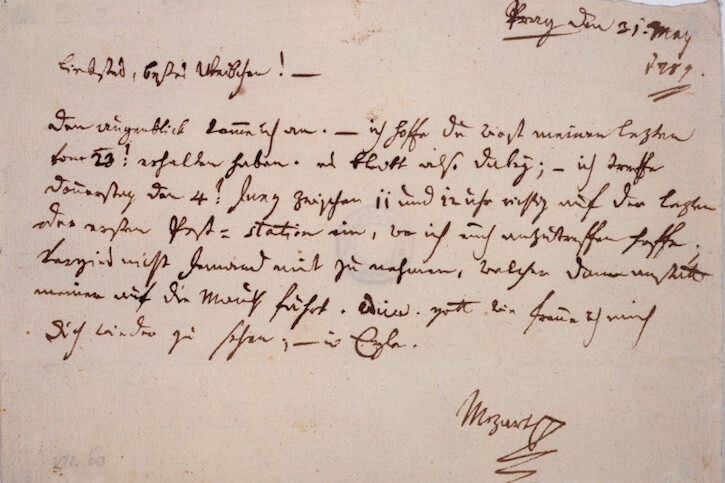 Prag den 31t May
1789.
liebstes, bestes Weibchen! —
den augenblick komme ich an. — ich hoffe du wirst meinen letzten
vom 23t erhalten haben. es bleibt also dabey; — ich treffe
donnerstag den 4t Juny zwischen 11 und 12 uhr richtig auf der letzten
oder ersten Post=station ein, wo ich euch anzutreffen hoffe,
vergiss nicht Jemand mit zu nehmen, welcher dann anstatt
meiner auf die Mauth fährt. Adieu. gott wie freue ich mich
dich wieder zu sehen; — in Eyle.
Mozart